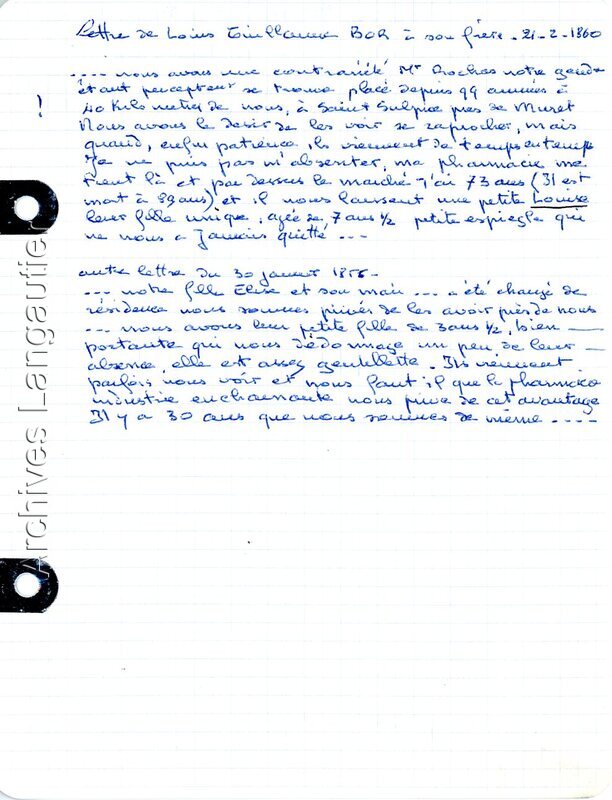 Lettre de Loius Guillaume BOR à son frère - 21-2-1860
.... nous avons une contrariété Mr Rochas notre gendre
étant percepteur se trouve placé depuis 99 années à
! 40 Kilomètres de nous, à Saint Sulpice près de Muret
Nous avons le desir de les voir se raprocher, mais
quand, enfin patience, ils viennent de temps en temps
Je ne puis pas m'absenter, ma pharmacie me
tient là et par dessus le marché j'ai 73 ans (Il est
mort à 89 ans) et il nous laissent une petite Louise
leur fille unique, agée de 7 ans ½ petite espiegle qui
ne nous a Jamais quitté ---
autre lettre du 30 janvier 1856-
--- notre fille Elisa et son mari --- a été changé de
résidence nous sommes privés de les avoir près de nous
--- nous avons leur petite fille de 3 ans ½, bien
portante qui nous dédommage un peu de leur
absence, elle est assez gentillette. Ils viennent
parfois nous voir et nous faut il que la pharmacie
industrie enchainante nous prive de cet avantage
Il y a 30 ans que nous sommes de même ----
Archives Langautier